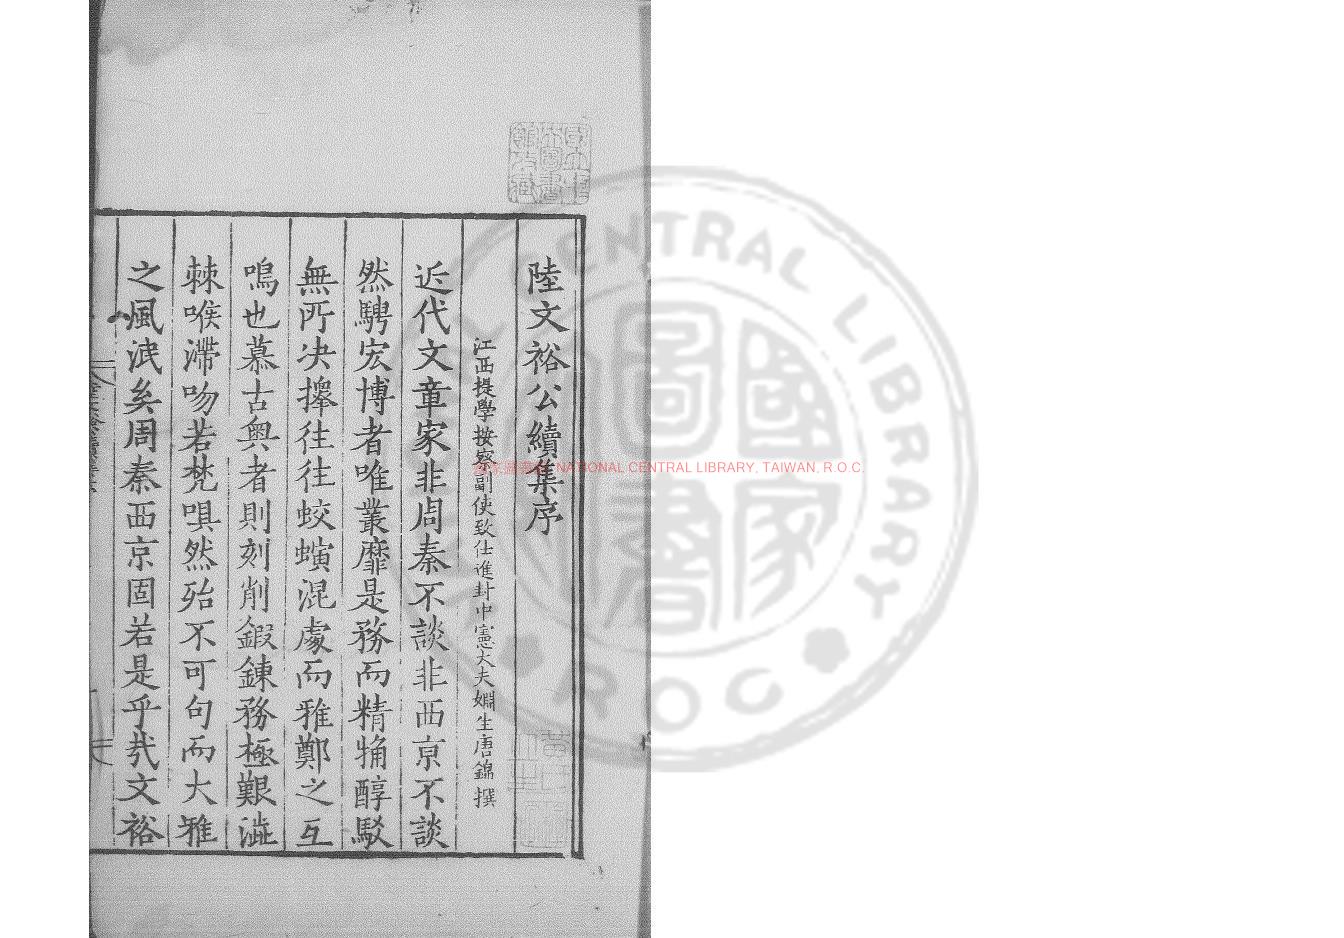 陸文裕公續集序
江西提學按察副使致仕進封中憲大夫婣生唐錦撰
近代文章家非周秦不談非西京不談
然騁宏博者唯叢靡是務而精觕醇駁
無所决擇往往蛟螾混處而雅鄭之互
鳴也慕古奧者則刻削鍜鍊務極艱澁
棘喉滯吻若梵唄然殆不可句而大雅
之風泯矣周秦西京固若是乎哉文裕
NATIONAL CENTRAL LIBRARY, TAIWAN, R.O.C.
CENTRAL LIBRARY
R O C